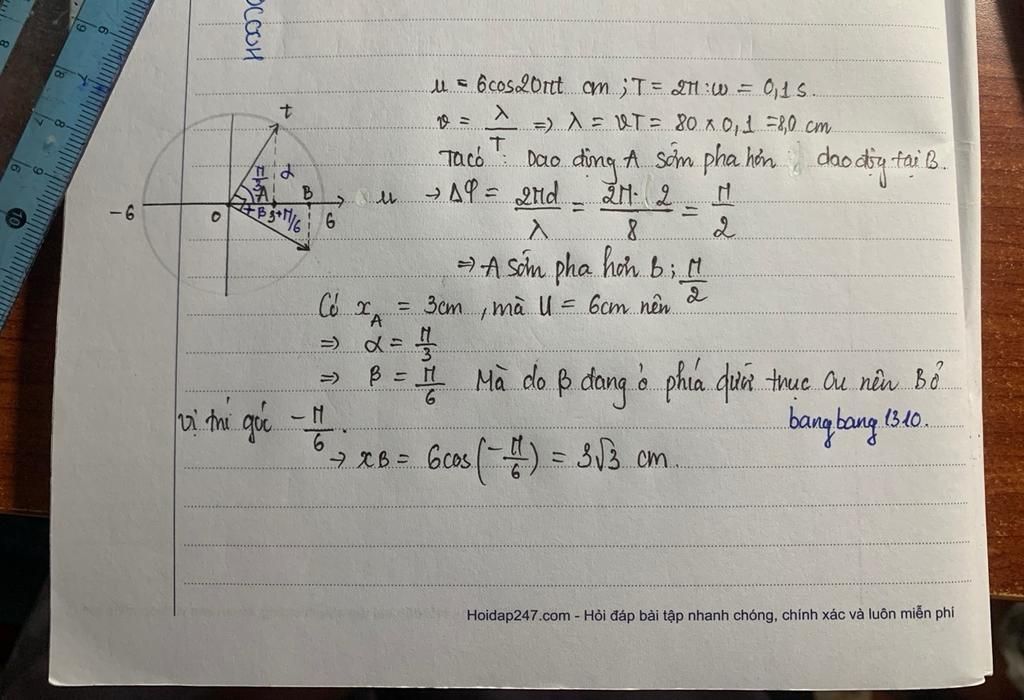 HOCOOH
u = 6cos20πt cm ; T = 2π : ω = 0,1 s.
v = λ/T => λ = vT = 80 × 0,1 = 8,0 cm
Ta có : Dao động A sớm pha hơn dao độg tại B.
→ Δφ = 2πd/λ = 2π. 2/8 = π/2
=> A sớm pha hơn B ; π/2
Có xA = 3cm , mà U = 6cm nên
=> α = π/3
=> β = π/6 Mà do β đang ở phiá dưới trục Ou nên B ở
vị trí góc -π/6.
bangbang1310.
→ xB = 6cos(-π/6) = 3√3 cm.
t
π/3 α
A B u
-6 O β 3 π/6 6
Hoidap247.com - Hỏi đáp bài tập nhanh chóng, chính xác và luôn miễn phí